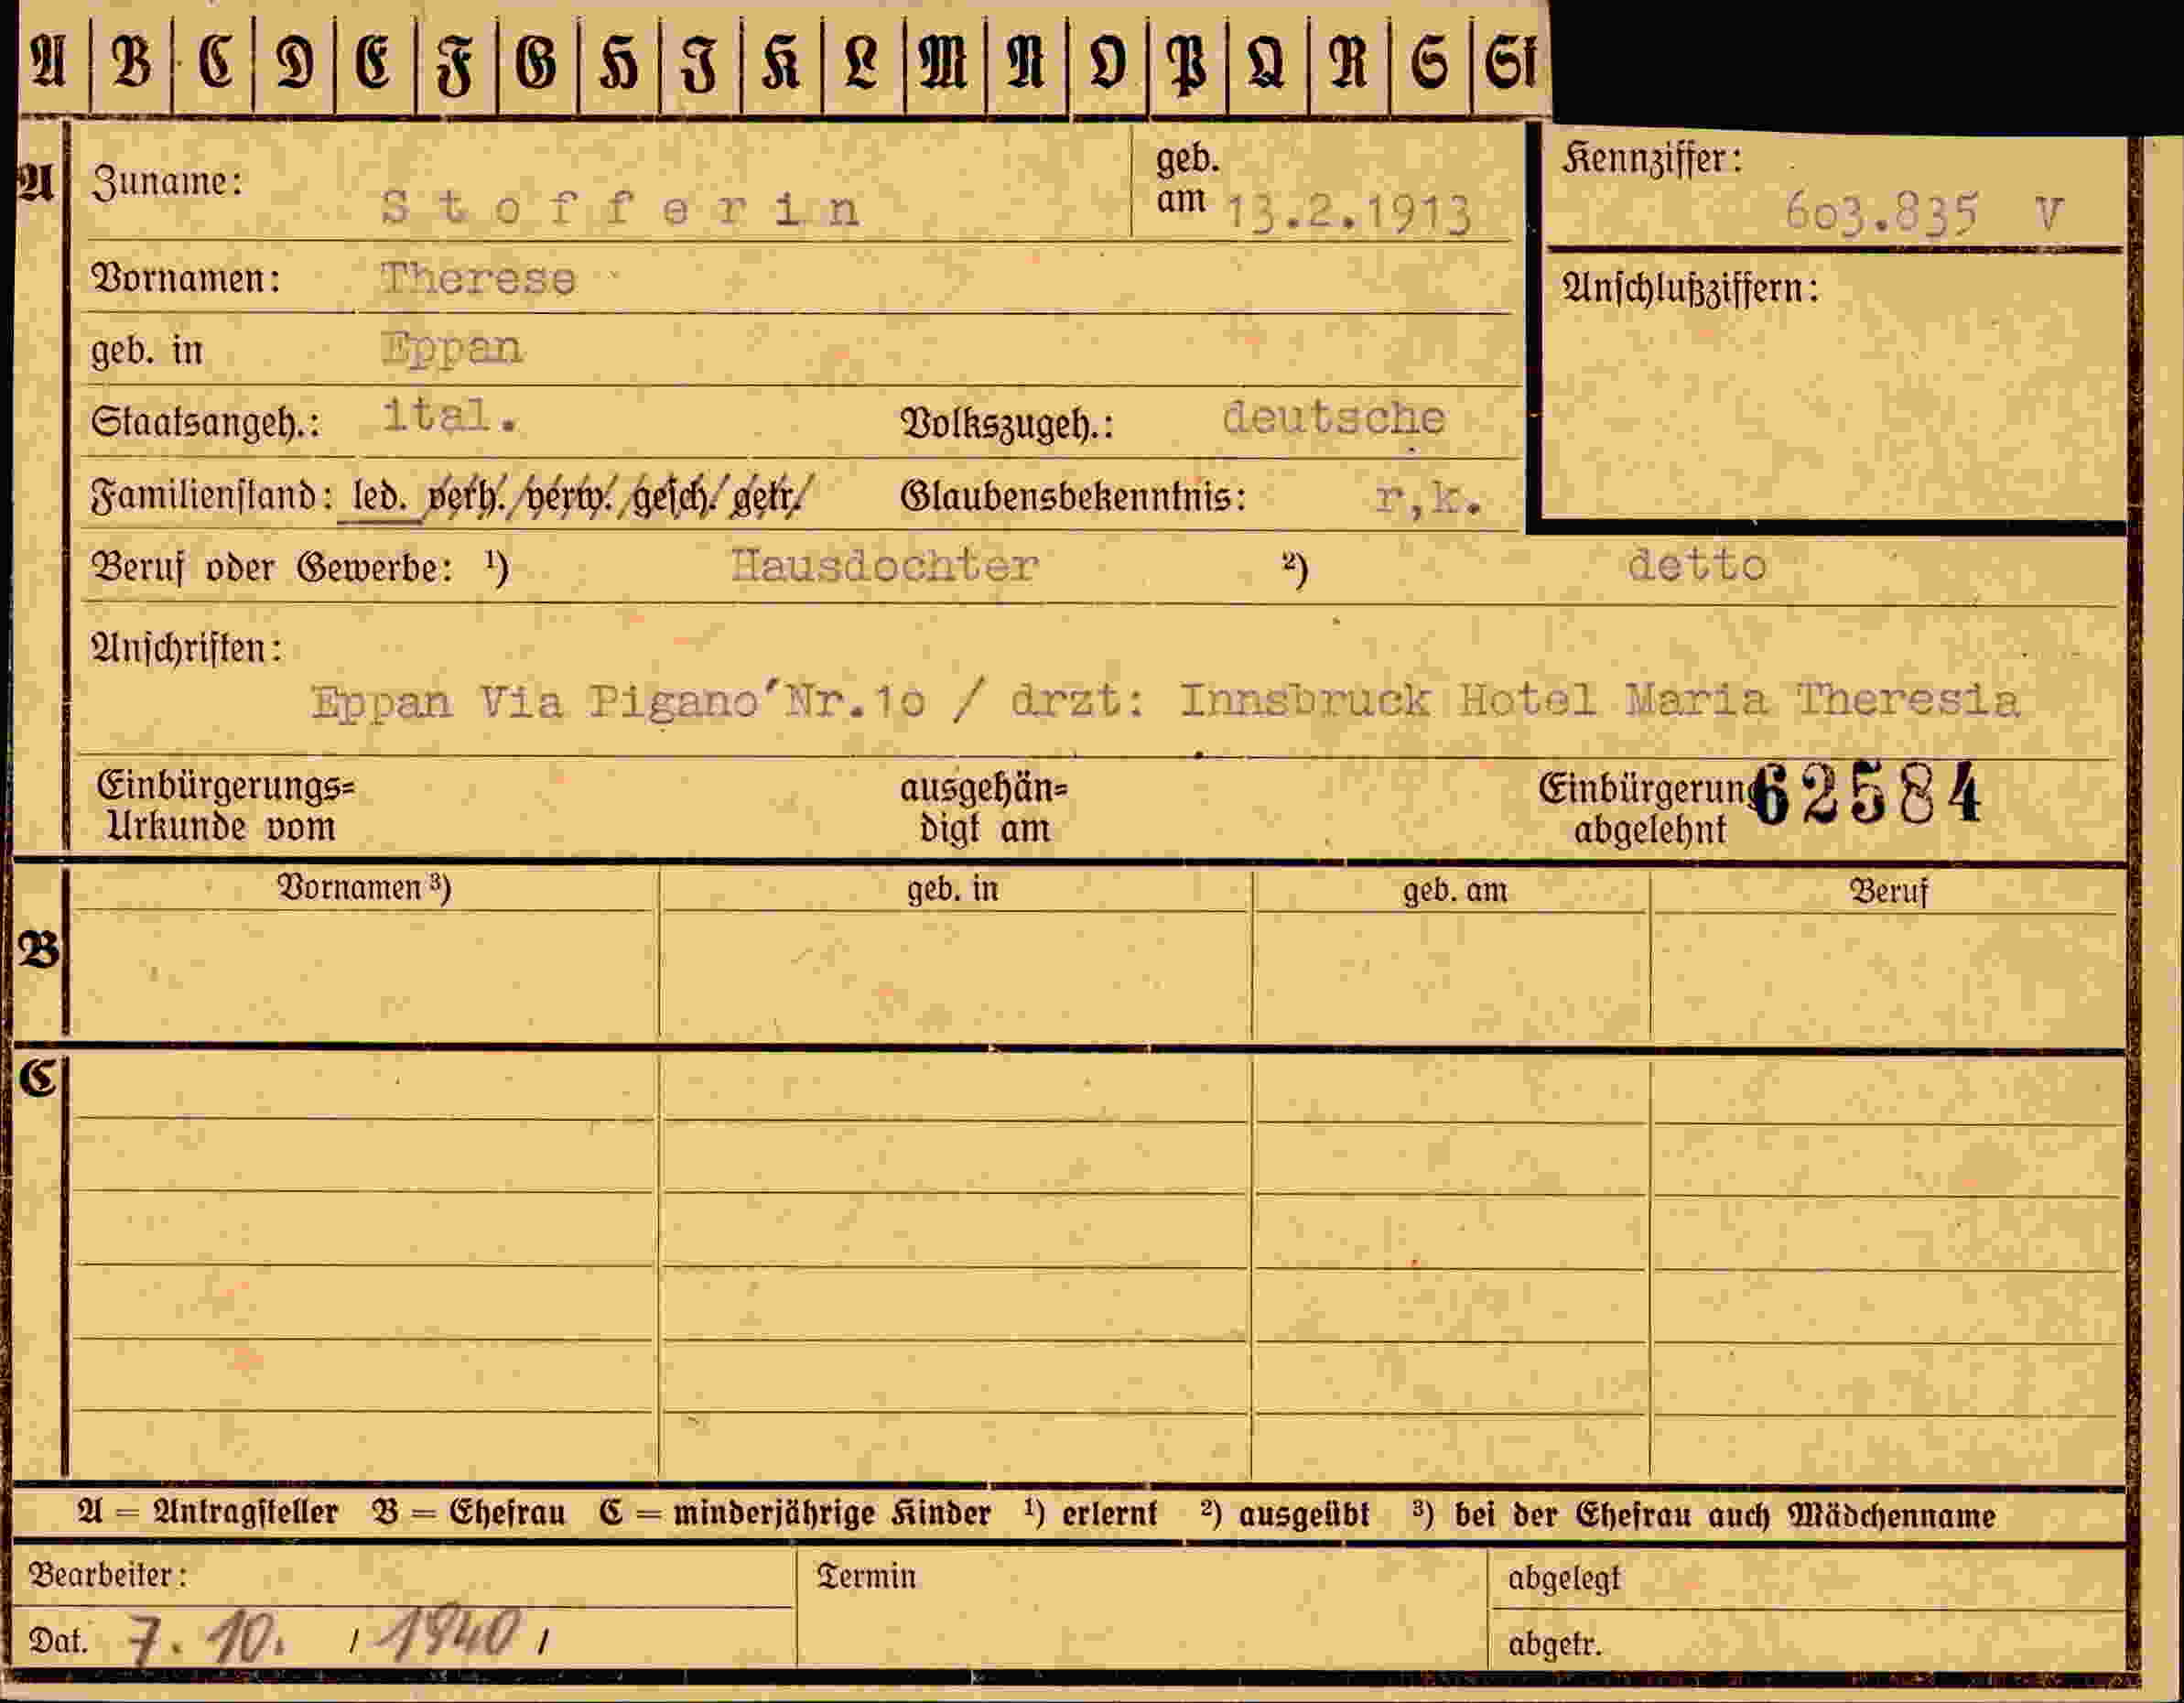 A B C D E F G H I K L M N O P Q R S St
A Zuname: Stofferin geb. am 13.2.1913 Kennziffer: 603.835 V
Vornamen: Therese Anschlußziffern:
geb. in Eppan
Staatsangeh.: ital. Volkszugeh.: deutsche
Familienstand: led. verh./verw./gesch./getr/ Glaubensbekenntnis: r,k.
Beruf oder Gewerbe: ¹) Hausdochter ²) detto
Anschriften:
Eppan Via Pigano'Nr.10 / drzt: Innsbruck Hotel Maria Theresia
Einbürgerungs= ausgehän= Einbürgerung 62584
Urkunde vom digt am abgelehnt
Vornamen ³) geb. in geb. am Beruf
B
C
A = Antragsteller B = Ehefrau C = minderjährige Kinder ¹) erlernt ²) ausgeübt ³) bei der Ehefrau auch Mädchenname
Bearbeiter: Termin abgelegt
Dat. 7. 10. / 1940 / abgetr.